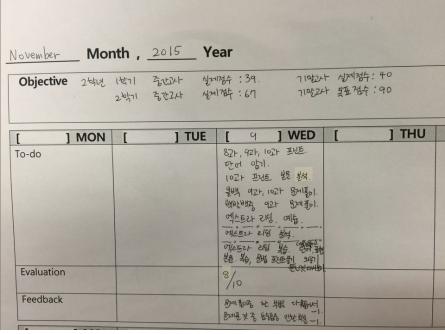 November Month, 2015 Year
Objective 2학년 1학기 중간고사 실제점수 : 39 기말고사 실제점수 : 40
2학기 중간고사 실제점수 : 67 기말고사 목표점수 : 90
[ ] MON [ ] TUE [ 9 ] WED [ ] THU
To-do 8과, 9과, 10과 프린트
단어 암기.
10과 프린트 본문 분석
9과, 10과 문제풀이.
9과 문제풀이
엑스트라 리딩 예습.
엑스트라 리딩 분석
엑스트라 리딩 복습
본문 복습,
Evaluation 8/10
Feedback